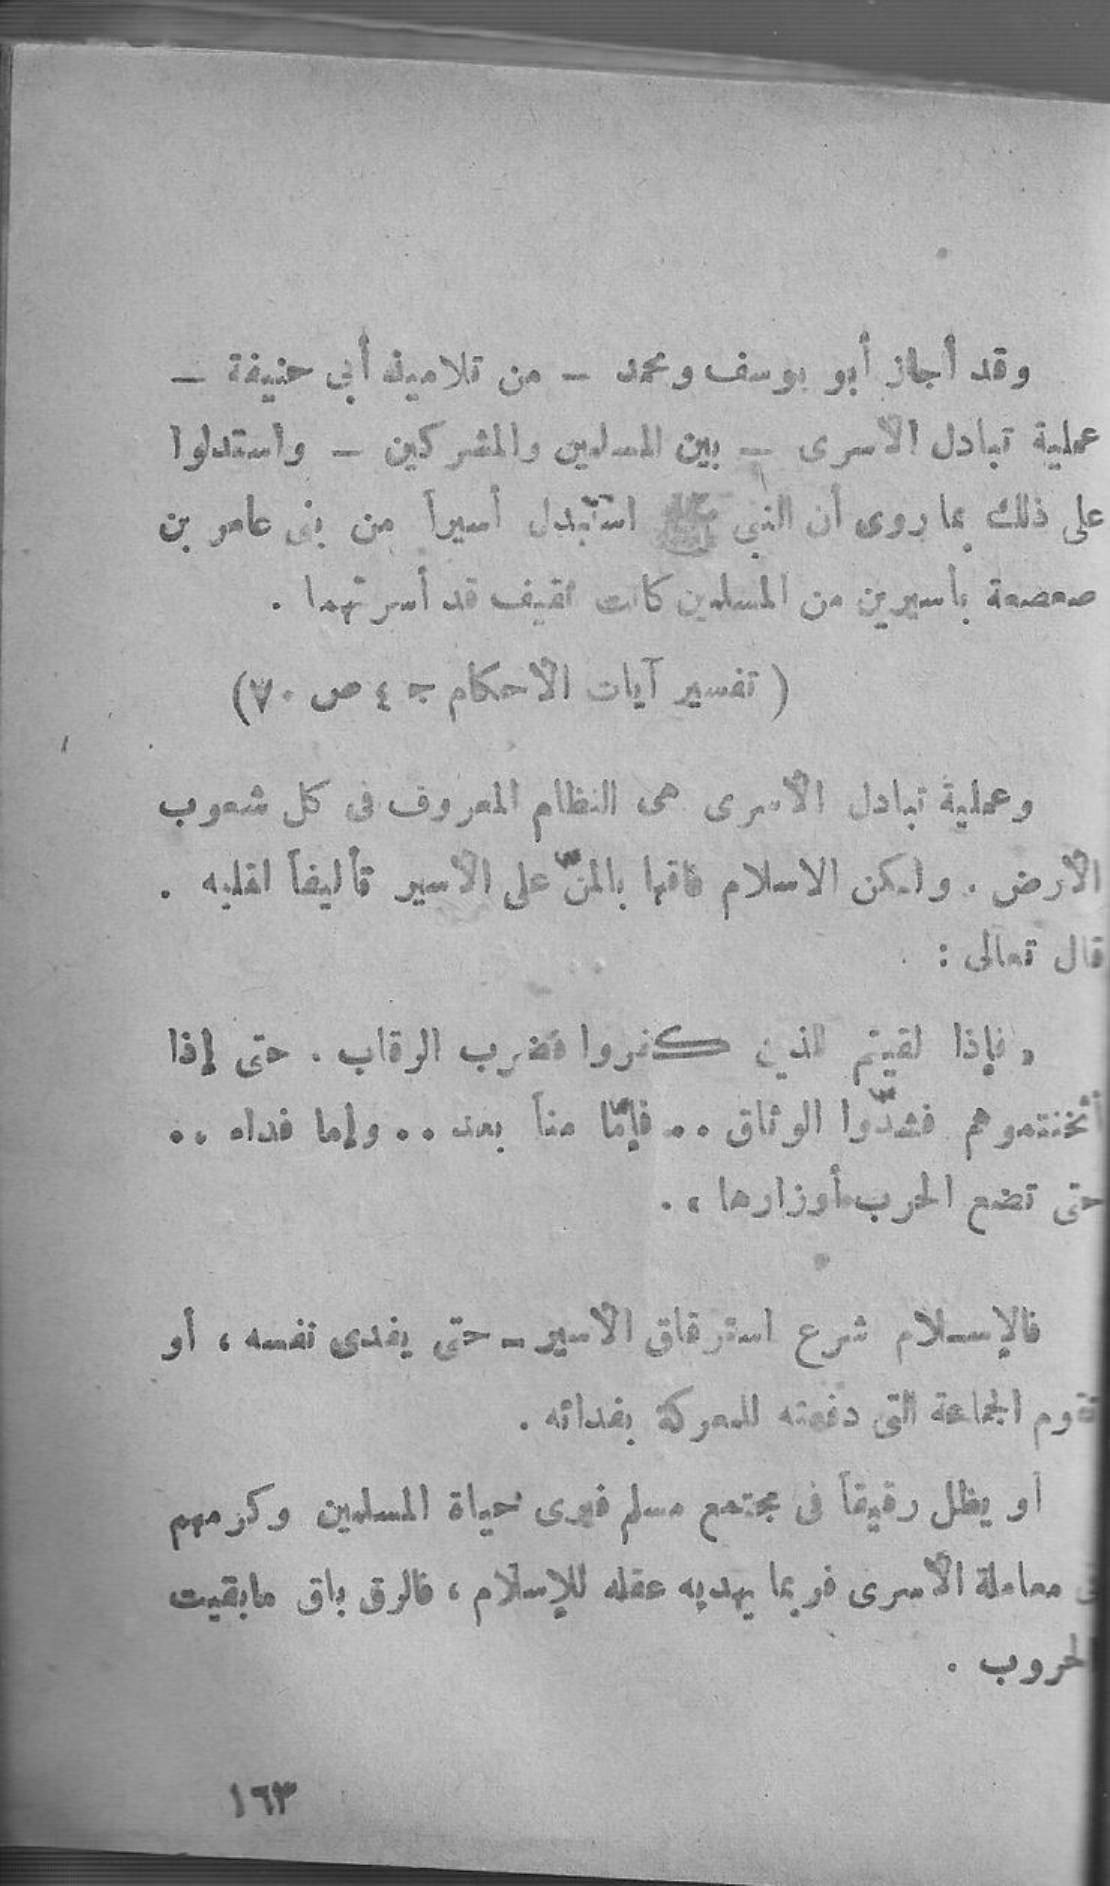 وقد أجاز أبو يوسف ومحمد – من تلاميذ أبى حنيفة –
عملية تبادل الأسرى – بين المسلمين والمشركين – واستدلوا
على ذلك بما روى أن النبي ﷺ استبدل أسيراً من بنى عامر بن
صعصعة بأسيرين من المسلمين كانت ثقيف قد أسرتهما .
( تفسير آيات الأحكام ج ٤ ص ٧٠)
وعملية تبادل الأسرى هى النظام المعروف فى كل شعوب
الأرض . ولكن الاسلام فاقها بالمنّ على الأسير تأليفاً لقلبه .
قال تعالى :
« فإذا لقيتم الذين كفروا فضرب الرقاب . حتى إذا
أثخنتموهم فشدّوا الوثاق .. فإمّا مناً بعد .. وإما فداء ..
حتى تضع الحرب أوزارها » .
فالإسلام شرع استرقاق الأسير – حتى يفدى نفسه ، أو
تقوم الجماعة التى دفعته للمعركة بفدائه .
أو يظل رقيقاً فى مجتمع مسلم فيرى حياة المسلمين وكرمهم
فى معاملة الأسرى فربما يهديه عقله للإسلام ، فالرق باق مابقيت
الحروب .
١٦٣